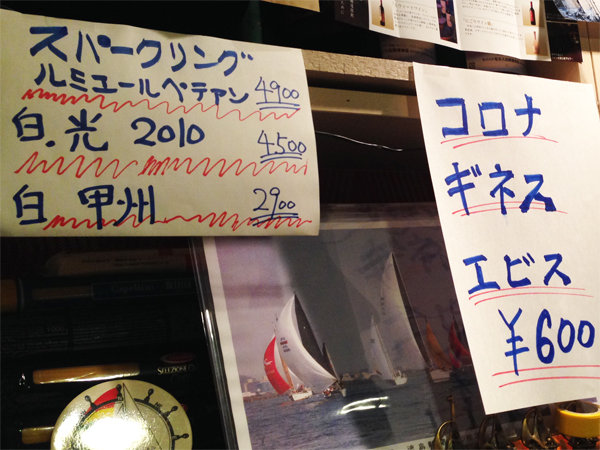 スパークリング
ルミエールペティアン 4900
白.光 2010 4500
白 甲州 2900
コロナ
ギネス
エビス
¥600